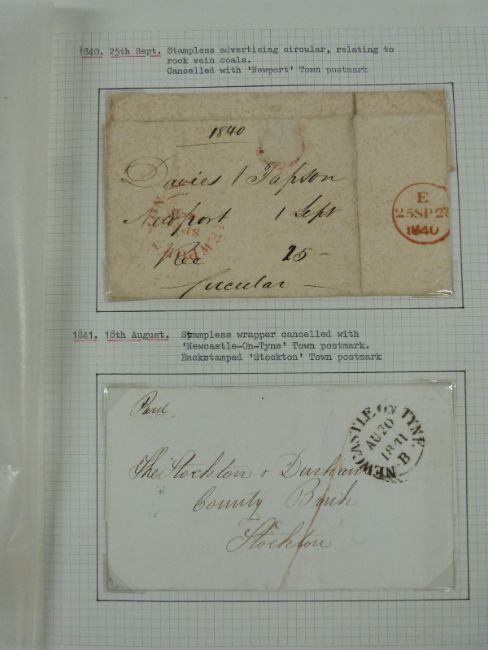 1840. 25th Sept. Stampless advertising circular, relating to
rock vein coals.
Cancelled with 'Newport' Town postmark
1840
Davies & Tapson
Newport 1 Sept
Rec 25-
Circular
E
25SP25
1840
1841. 18th August. Stampless wrapper cancelled with
'Newcastle-On-Tyne' Town postmark.
Backstamped 'Stockton' Town postmark
Paid
The Stockton & Durham
County Bank
Stockton
NEWCASTLE ON TYNE
AU20
1841
B